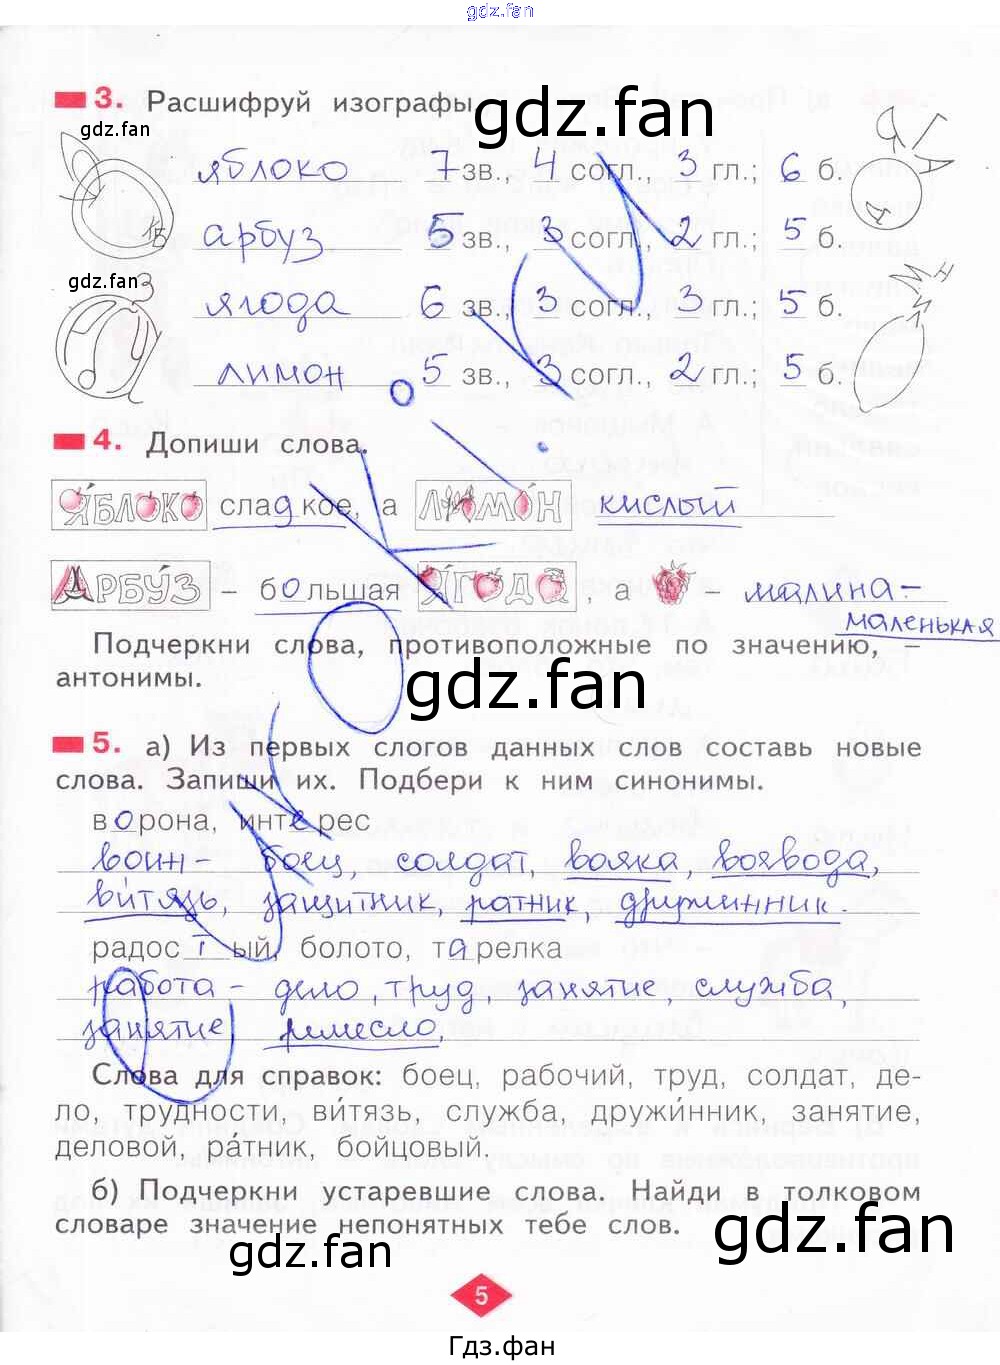 gdz.fan
3. Расшифруй изографы.
gdz.fan
gdz.fan
яблоко 7 зв., 4 согл., 3 гл.; 6 б.
арбуз 5 зв., 3 согл., 2 гл.; 5 б.
gdz.fan
ягода 6 зв., 3 согл., 3 гл.; 5 б.
лимон 5 зв., 3 согл., 2 гл.; 5 б.
4. Допиши слова.
ЯБЛОКО сладкое, а ЛИМОН кислый
АРБУЗ – большая ЯГОДА, а – малина –
маленькая
Подчеркни слова, противоположные по значению, –
антонимы.
gdz.fan
5. а) Из первых слогов данных слов составь новые
слова. Запиши их. Подбери к ним синонимы.
ворона, интерес
воин – боец, солдат, вояка, воевода,
витязь, защитник, ратник, дружинник.
радостный, болото, тарелка
работа – дело, труд, занятие, служба,
занятие, ремесло.
Слова для справок: боец, рабочий, труд, солдат, де-
ло, трудности, ви́тязь, служба, дружи́нник, занятие,
деловой, ра́тник, бойцовый.
б) Подчеркни устаревшие слова. Найди в толковом
словаре значение непонятных тебе слов.
gdz.fan
gdz.fan
5
Гдз.фан